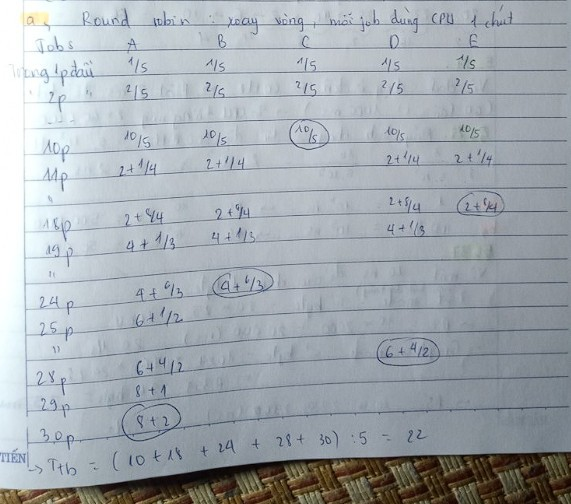 a, Round robin : xoay vòng, mỗi job dùng CPU 1 chút
Jobs A B C D E
Trong 1p đầu 1/5 1/5 1/5 1/5 1/5
" 2p " 2/5 2/5 2/5 2/5 2/5
...
10p 10/5 10/5 10/5 10/5 10/5
11p 2+1/4 2+1/4 2+1/4 2+1/4
"
18p 2+8/4 2+8/4 2+8/4 2+8/4
19p 4+1/3 4+1/3 4+1/3
"
24p 4+6/3 4+6/3
25p 6+1/2
"
28p 6+4/2 6+4/2
29p 8+1
30p 8+2
TIẾN → Ttb = (10 + 18 + 24 + 28 + 30) : 5 = 22